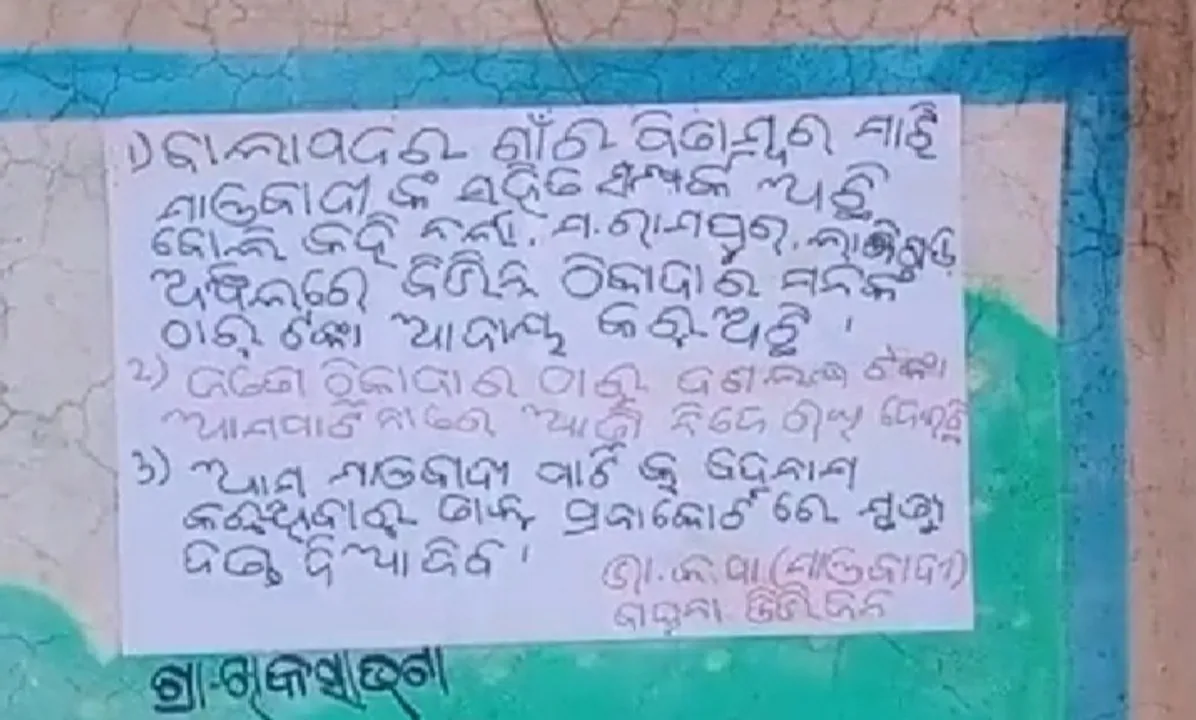 ୧) ବାଲାପଦର ଗାଁର ପିତାମ୍ବର ମାଝି
ମାଓବାଦୀ ଙ୍କ ସହିତ ସମ୍ପର୍କ ଅଛି
ବୋଲି କହି ନର୍ଲା. ମ.ରାମପୁର. ଲାଞ୍ଜିଗଡ଼
ଅଞ୍ଚଳରେ ବିଭିନ୍ନ ଠିକାଦାର ମାନଙ୍କ
ଠାରୁ ଟଙ୍କା ଆଦାୟ କରୁଅଛି ।
2) ଠିକାଦାର ଠାରୁ ଦଶଲକ୍ଷ ଟଙ୍କା
ଆମପାର୍ଟି ନାମରେ ଆଣି ନିଜେ ଦେଇଛି
3) ଆମ ମାଓବାଦୀ ପାର୍ଟି କୁ ବଦନାମ
କରୁଥିବାରୁ ତାଙ୍କୁ ପ୍ରଜାକୋର୍ଟ ରେ ମୃତ୍ୟୁ
ଦଣ୍ଡ ଦିଆଯିବ ।
ଭା.କ.ପା.(ମାଓବାଦୀ)
ଡିଭିଜନ
ଗ୍ରା-